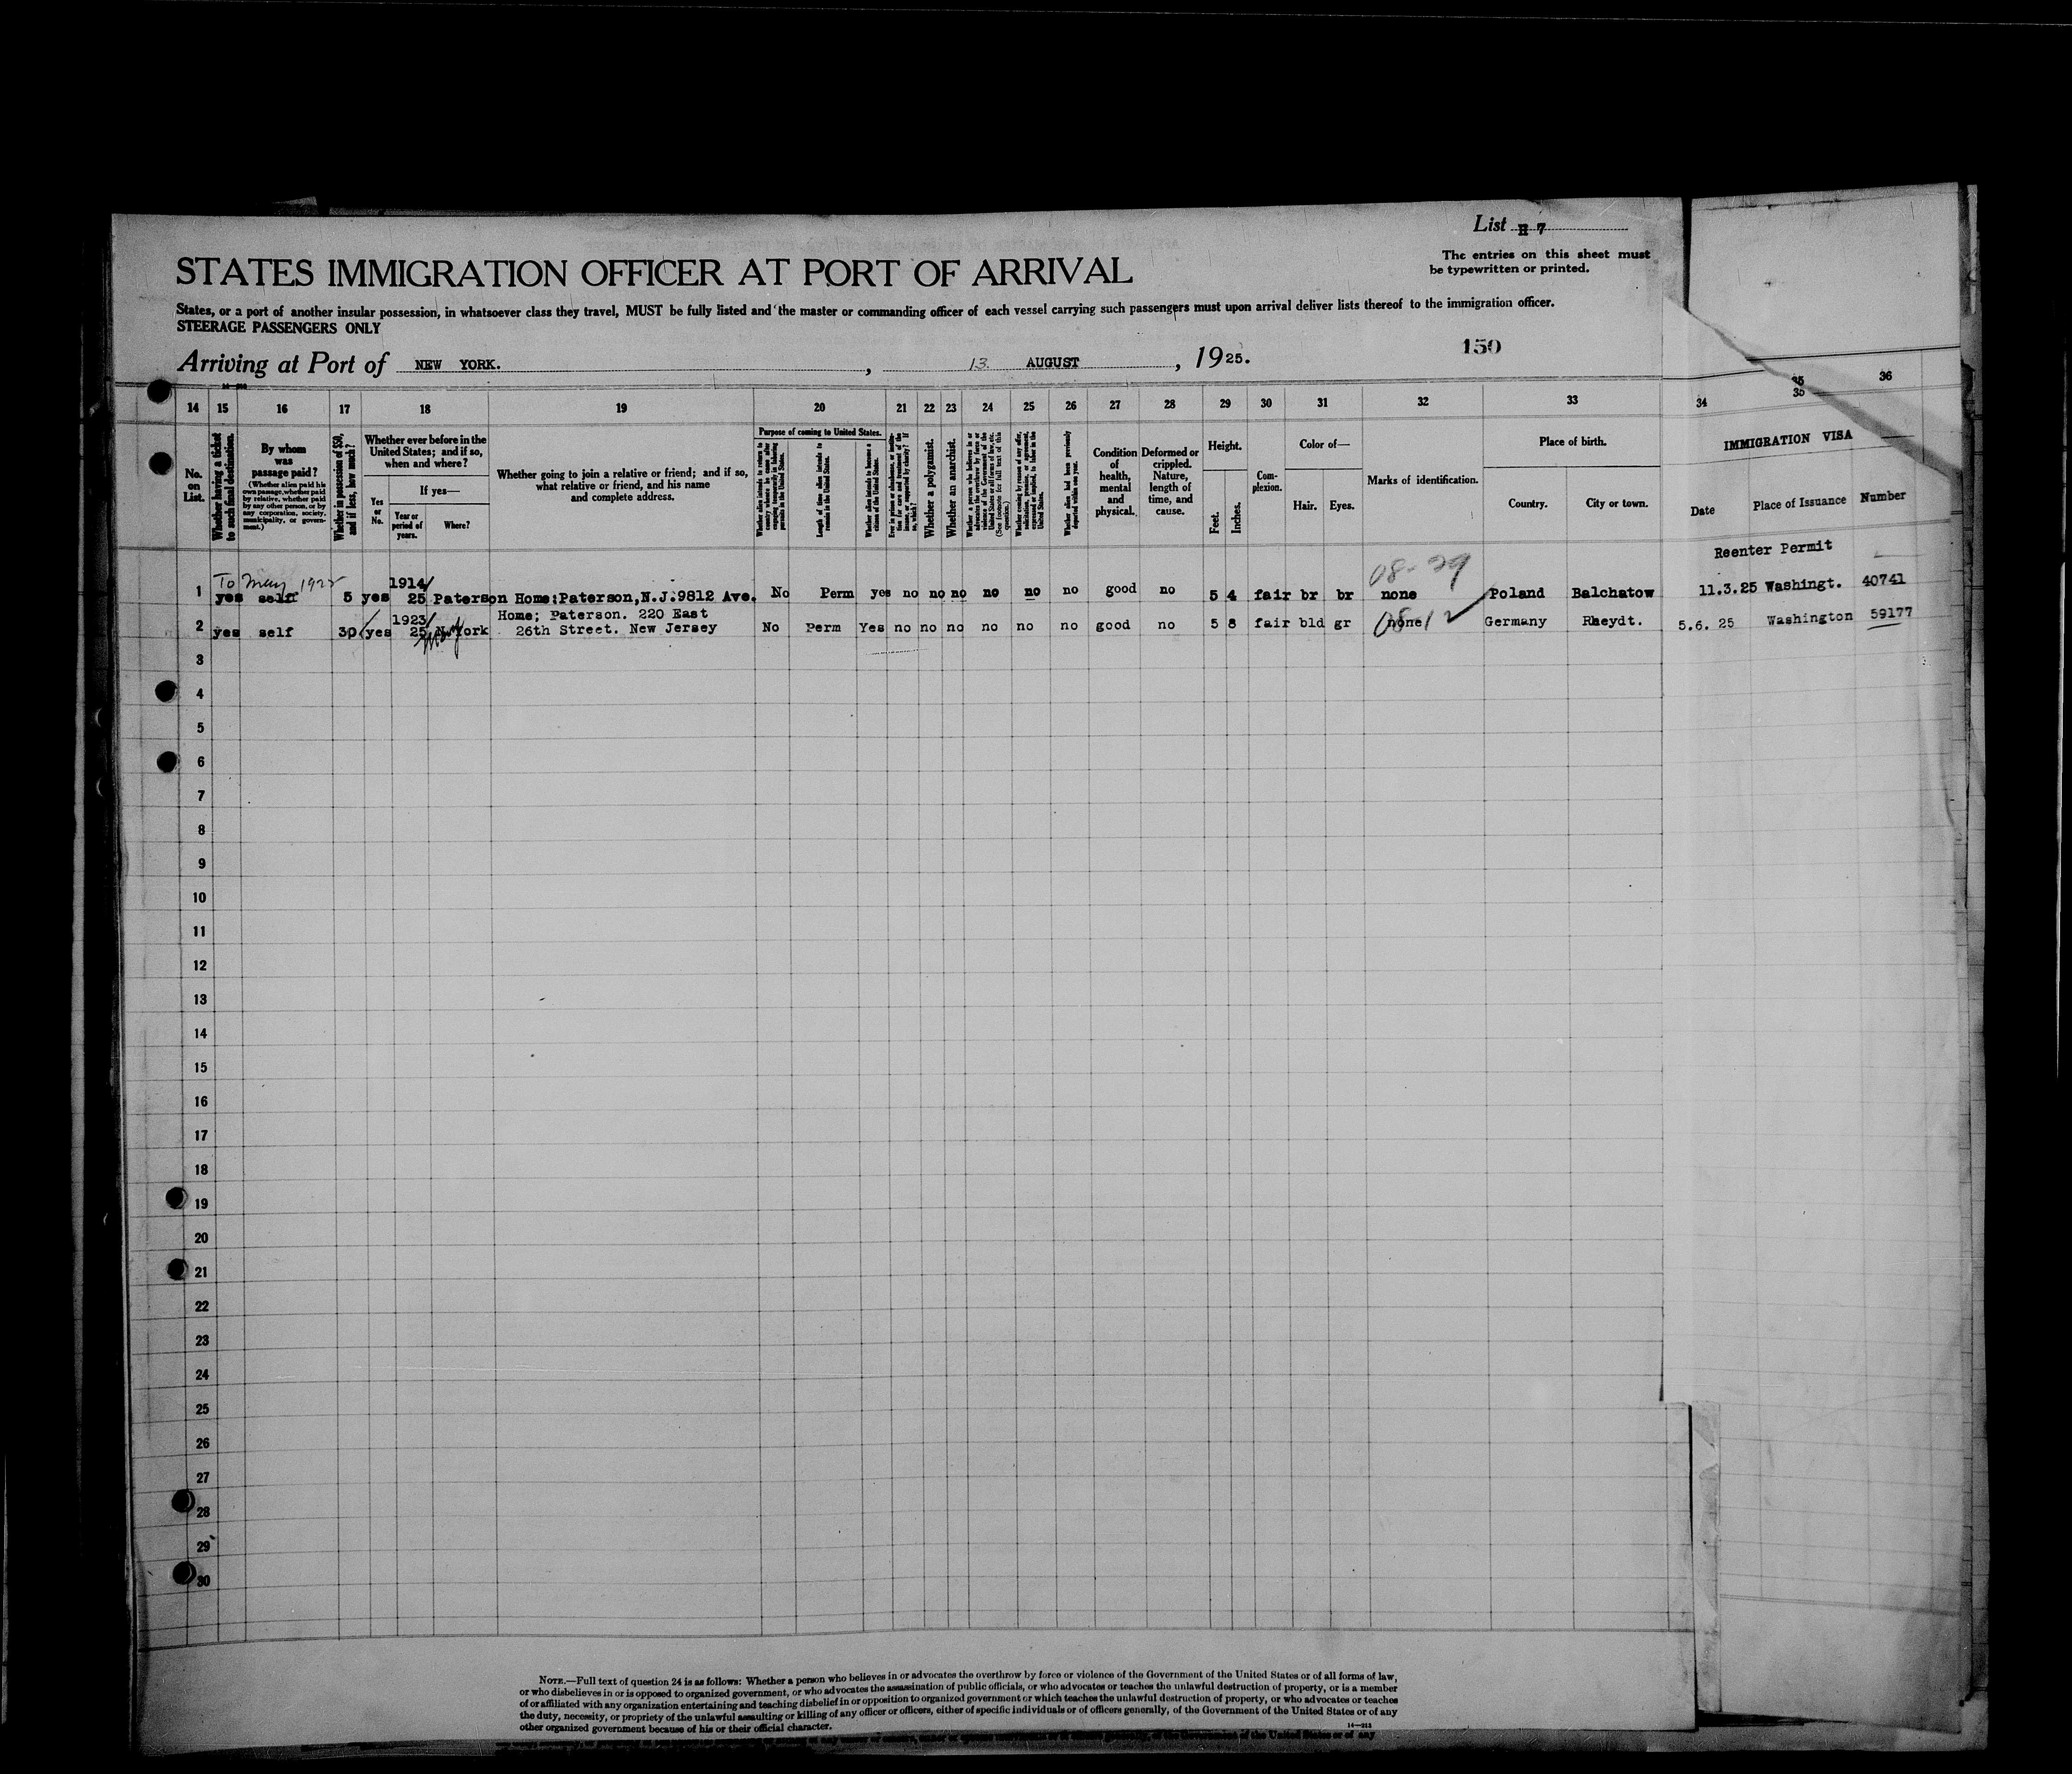 List H 7
The entries on this sheet must
be typewritten or printed.
STATES IMMIGRATION OFFICER AT PORT OF ARRIVAL
States, or a port of another insular possession, in whatsoever class they travel, MUST be fully listed and the master or commanding officer of each vessel carrying such passengers must upon arrival deliver lists thereof to the immigration officer.
STEERAGE PASSENGERS ONLY
150
Arriving at Port of NEW YORK. , 13 AUGUST , 1925.
14 15 16 17 18 19 20 21 22 23 24 25 26 27 28 29 30 31 32 33 34 35 36
35
No. on List.
Whether having a ticket to such final destination.
By whom was passage paid?
(Whether alien paid his own passage, whether paid by relative, whether paid by any other person, or by any corporation, society, municipality, or government.)
Whether in possession of $50, and if less, how much?
Whether ever before in the United States; and if so, when and where?
Yes or No.
If yes—
Year or period of years.
Where?
Whether going to join a relative or friend; and if so, what relative or friend, and his name and complete address.
Purpose of coming to United States.
Whether alien intends to return to country whence he came after engaging temporarily in laboring pursuits in the United States.
Length of time alien intends to remain in the United States.
Whether alien intends to become a citizen of the United States.
Ever in prison or almshouse, or institution for care and treatment of the insane, or supported by charity? If so, which?
Whether a polygamist.
Whether an anarchist.
Whether a person who believes in or advocates the overthrow by force or violence of the Government of the United States or all forms of law, etc. (See footnote for full text of this question.)
Whether coming by reason of any offer, solicitation, promise, or agreement, expressed or implied, to labor in the United States.
Whether alien had been previously deported within one year.
Condition of health, mental and physical.
Deformed or crippled. Nature, length of time, and cause.
Height.
Feet. Inches.
Complexion.
Color of—
Hair. Eyes.
Marks of identification.
Place of birth.
Country. City or town.
IMMIGRATION VISA
Date Place of Issuance Number
Reenter Permit
To May 1925 1914/ 08-29
1 yes self 5 yes 25 Paterson Home:Paterson,N.J.9812 Ave. No Perm yes no no no no no no good no 5 4 fair br br none Poland Balchatow 11.3.25 Washingt. 40741
1923/ Home; Paterson. 220 East
2 yes self 30 yes 25 N.York 26th Street. New Jersey No Perm Yes no no no no no no good no 5 8 fair bld gr none Germany Rheydt. 5.6. 25 Washington 59177
3
4
5
6
7
8
9
10
11
12
13
14
15
16
17
18
19
20
21
22
23
24
25
26
27
28
29
30
NOTE.—Full text of question 24 is as follows: Whether a person who believes in or advocates the overthrow by force or violence of the Government of the United States or of all forms of law,
or who disbelieves in or is opposed to organized government, or who advocates the assassination of public officials, or who advocates or teaches the unlawful destruction of property, or is a member
of or affiliated with any organization entertaining and teaching disbelief in or opposition to organized government or which teaches the unlawful destruction of property, or who advocates or teaches
the duty, necessity, or propriety of the unlawful assaulting or killing of any officer or officers, either of specific individuals or of officers generally, of the Government of the United States or of any
other organized government because of his or their official character.
14—213
of the Government of the United States or of any